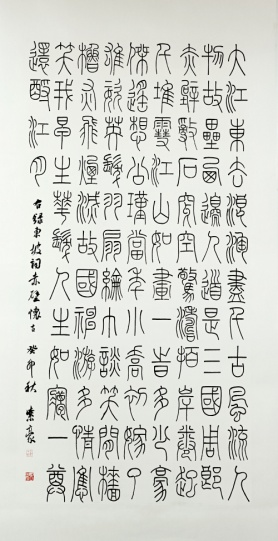 大江東去浪淘盡千古風流人
物故壘西邊人道是三國周郎
赤壁亂石穿空驚濤拍岸卷起
千堆雪江山如畫一時多少豪
傑遙想公瑾當年小喬初嫁了
雄姿英發羽扇綸巾談笑間檣
櫓灰飛煙滅故國神遊多情應
笑我早生華髮人生如夢一尊
還酹江月
右錄東坡詞赤壁懷古 癸卯秋